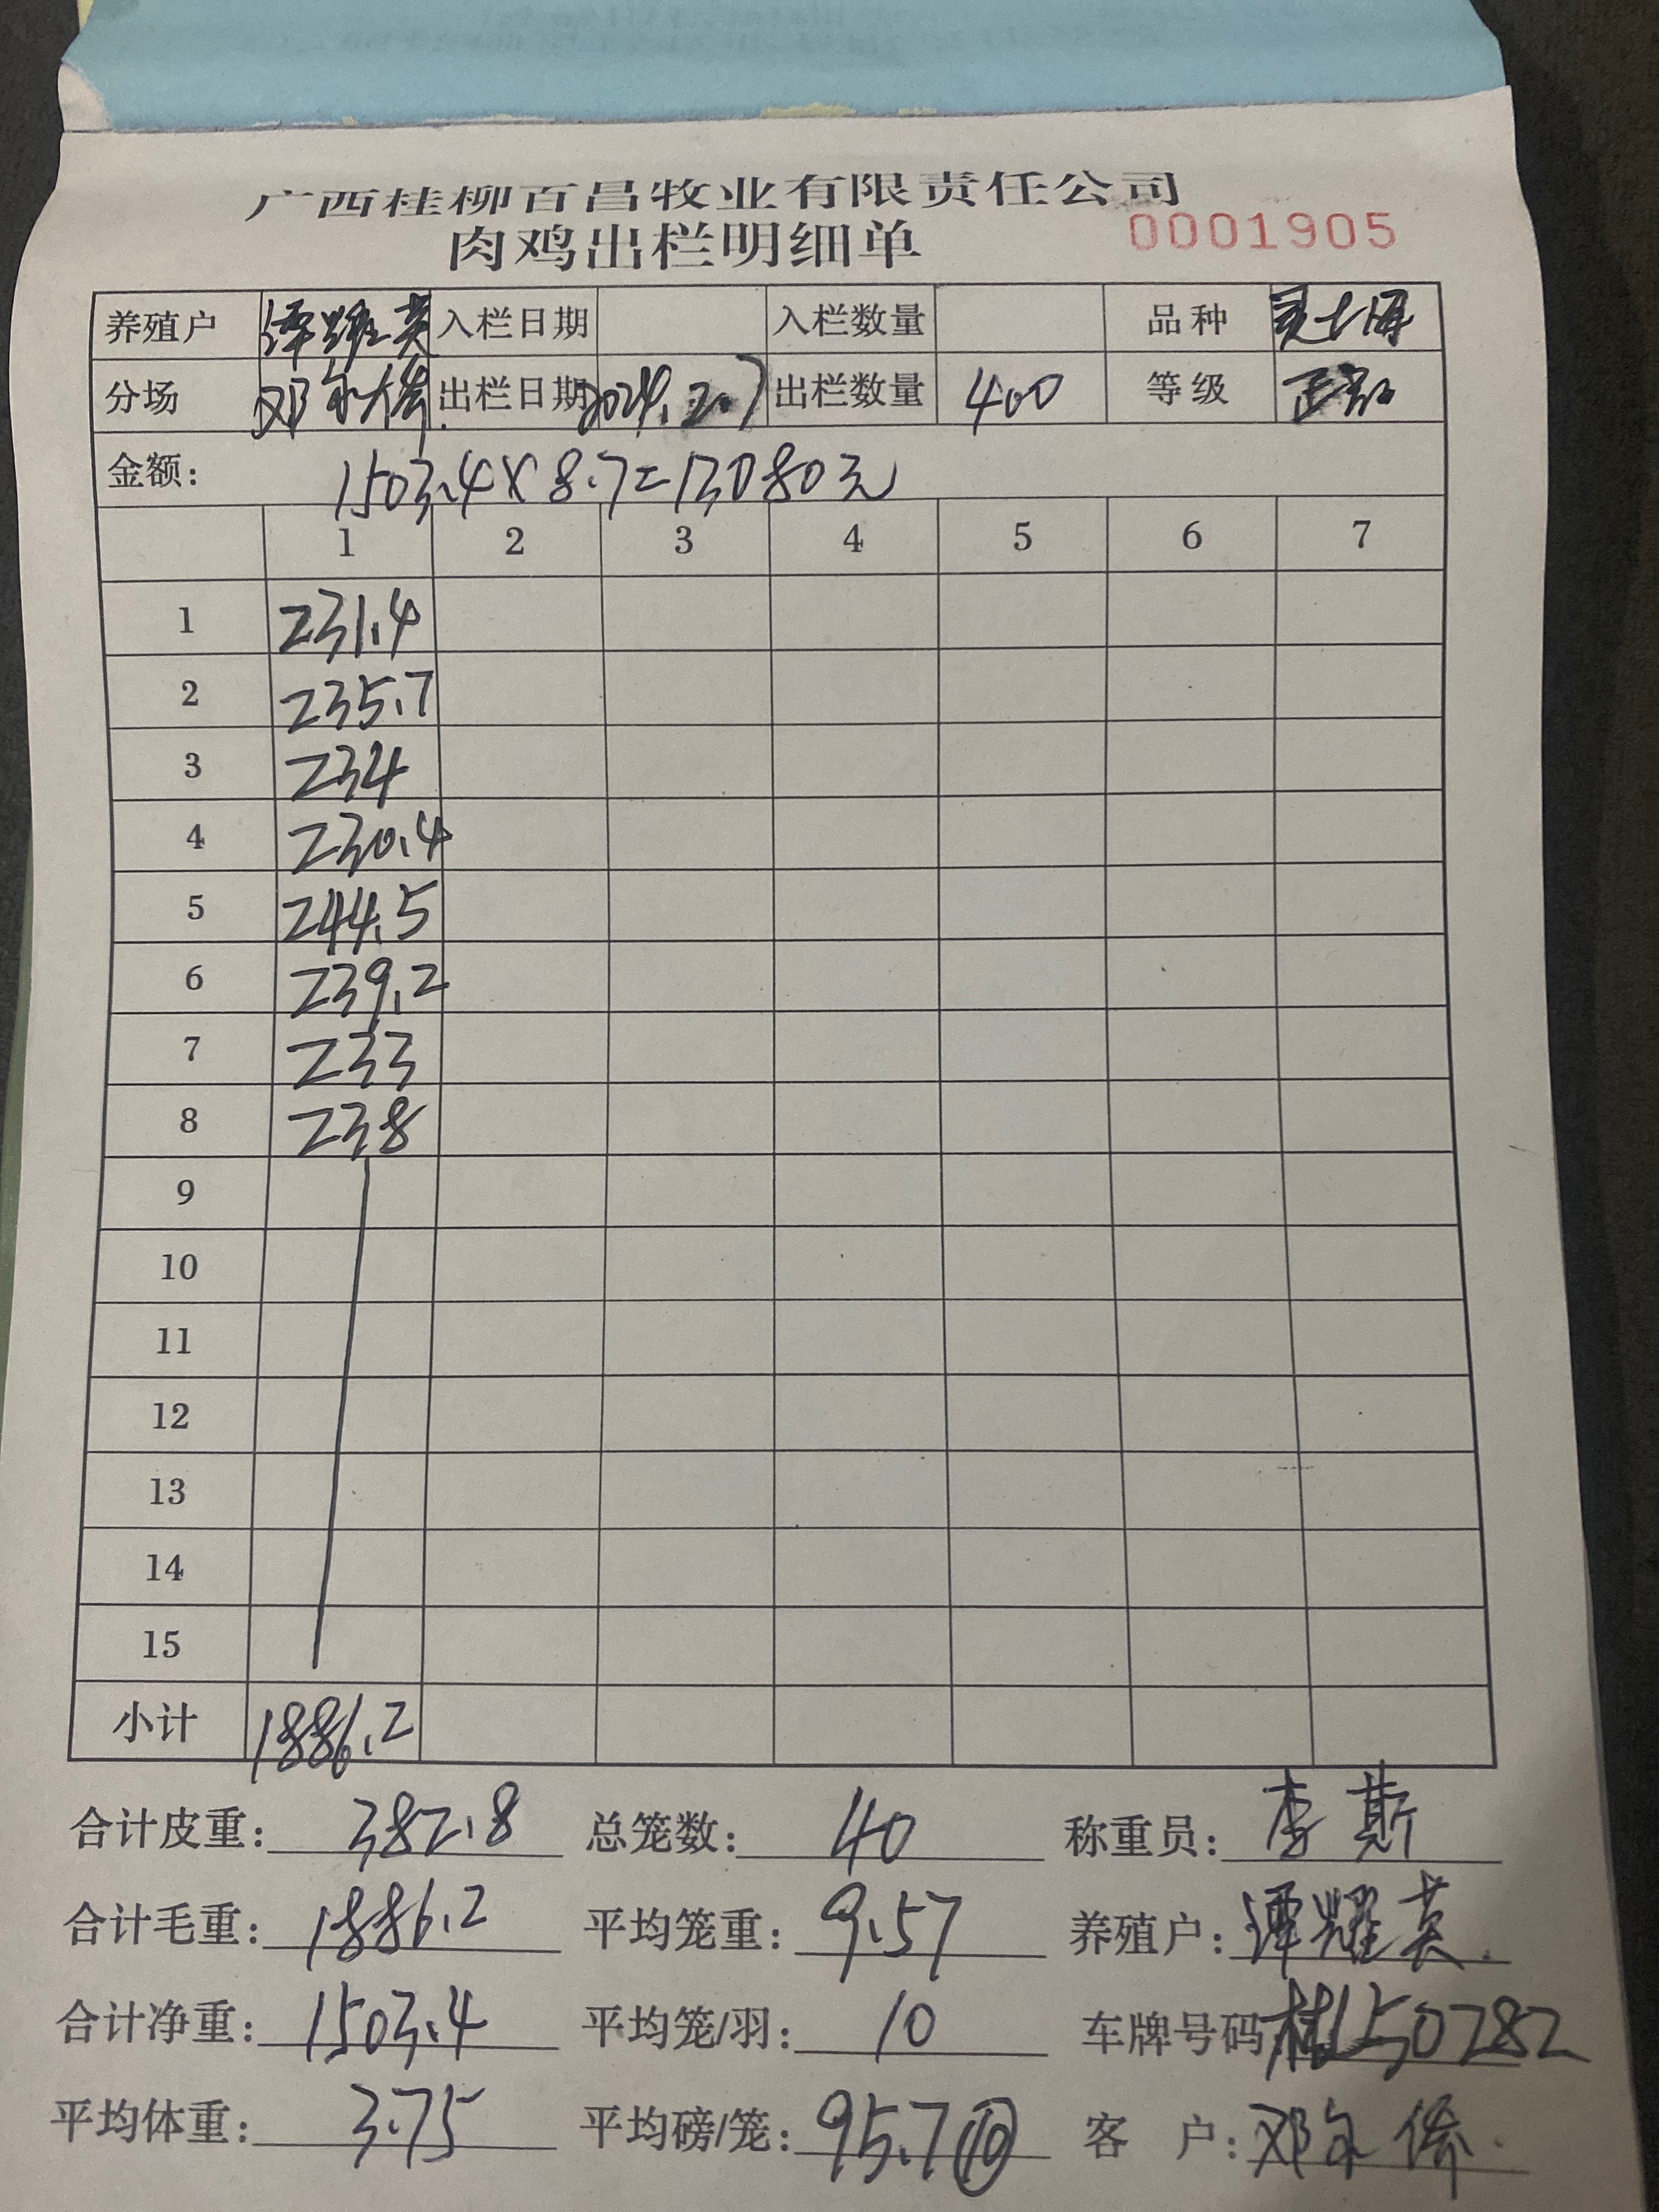 广西桂柳百昌牧业有限责任公司
肉鸡出栏明细单 0001905
养殖户 谭耀英 入栏日期 入栏数量 品种
分场 出栏日期 2024.2.7 出栏数量 400 等级
金额: 1503.4×8.7=13080元
1 2 3 4 5 6 7
1 231.4
2 235.7
3 234
4 230.4
5 244.5
6 239.2
7 233
8 238
9
10
11
12
13
14
15
小计 1886.2
合计皮重: 382.8 总笼数: 40 称重员: 李斯
合计毛重: 1886.2 平均笼重: 9.57 养殖户: 谭耀英
合计净重: 1503.4 平均笼/羽: 10 车牌号码 50282
平均体重: 3.75 平均磅/笼: 95.7 ⑩ 客 户: